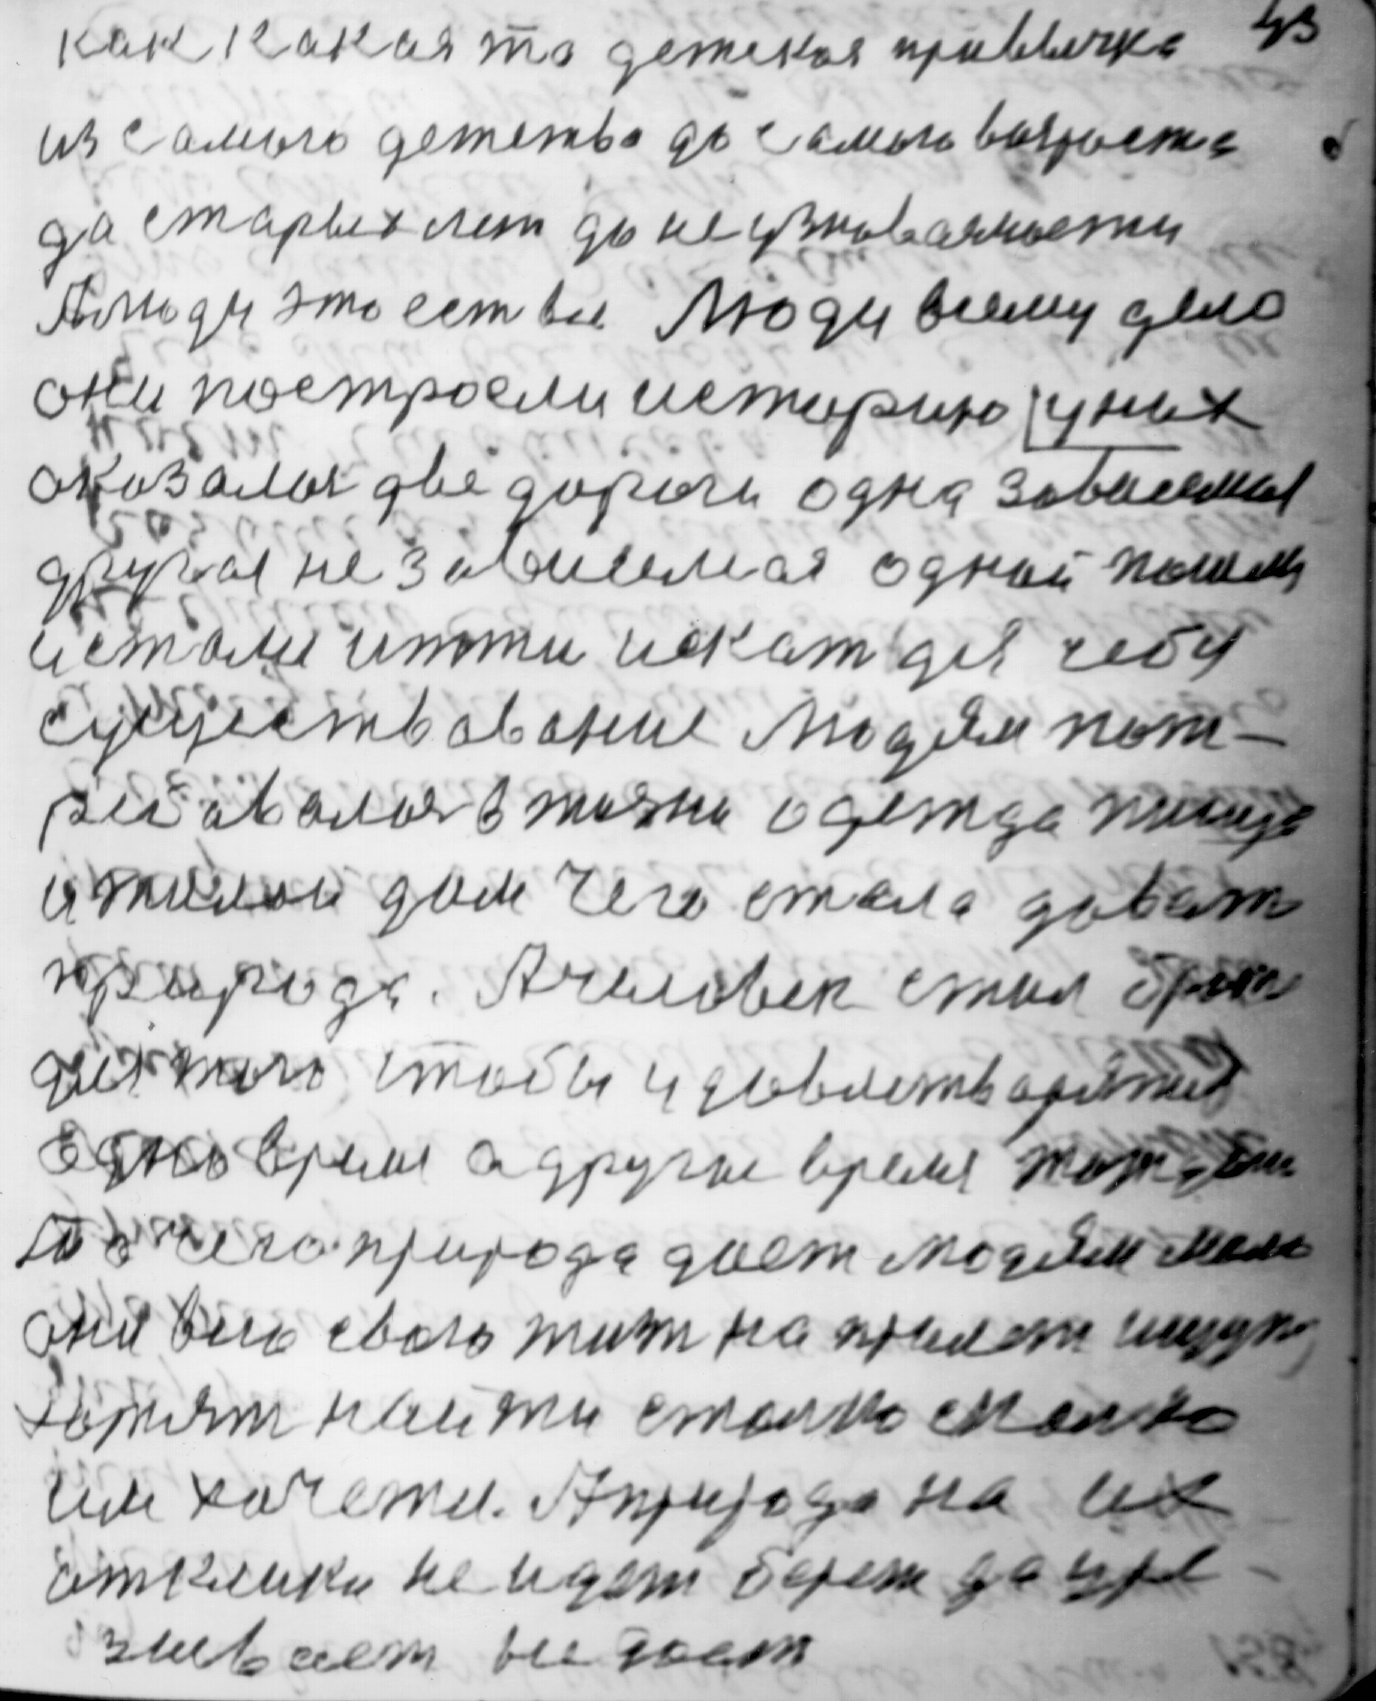 43
как какая то детская привычка
из самого детства до самого возроста
да старых лет до неузноваемости
А люди это есть все Люди всему дело
они построели историю у них
оказалось две дороги одна зависемая
другая не зависемая одной пошли
и стали итти искат для себя
существование Людям пот-
ребавалося в жизни одежда пища
и жилой дом Чего стала доват
природа. А человек стал
для того чтобы удовлетворятся
одно время а другое время
чего природа дает людям мало
они всего свого жизн на пролети ищут
хотят найти столко сколко
им хочется. А природа на их
отклики не идет берет да уре
зивает не дает